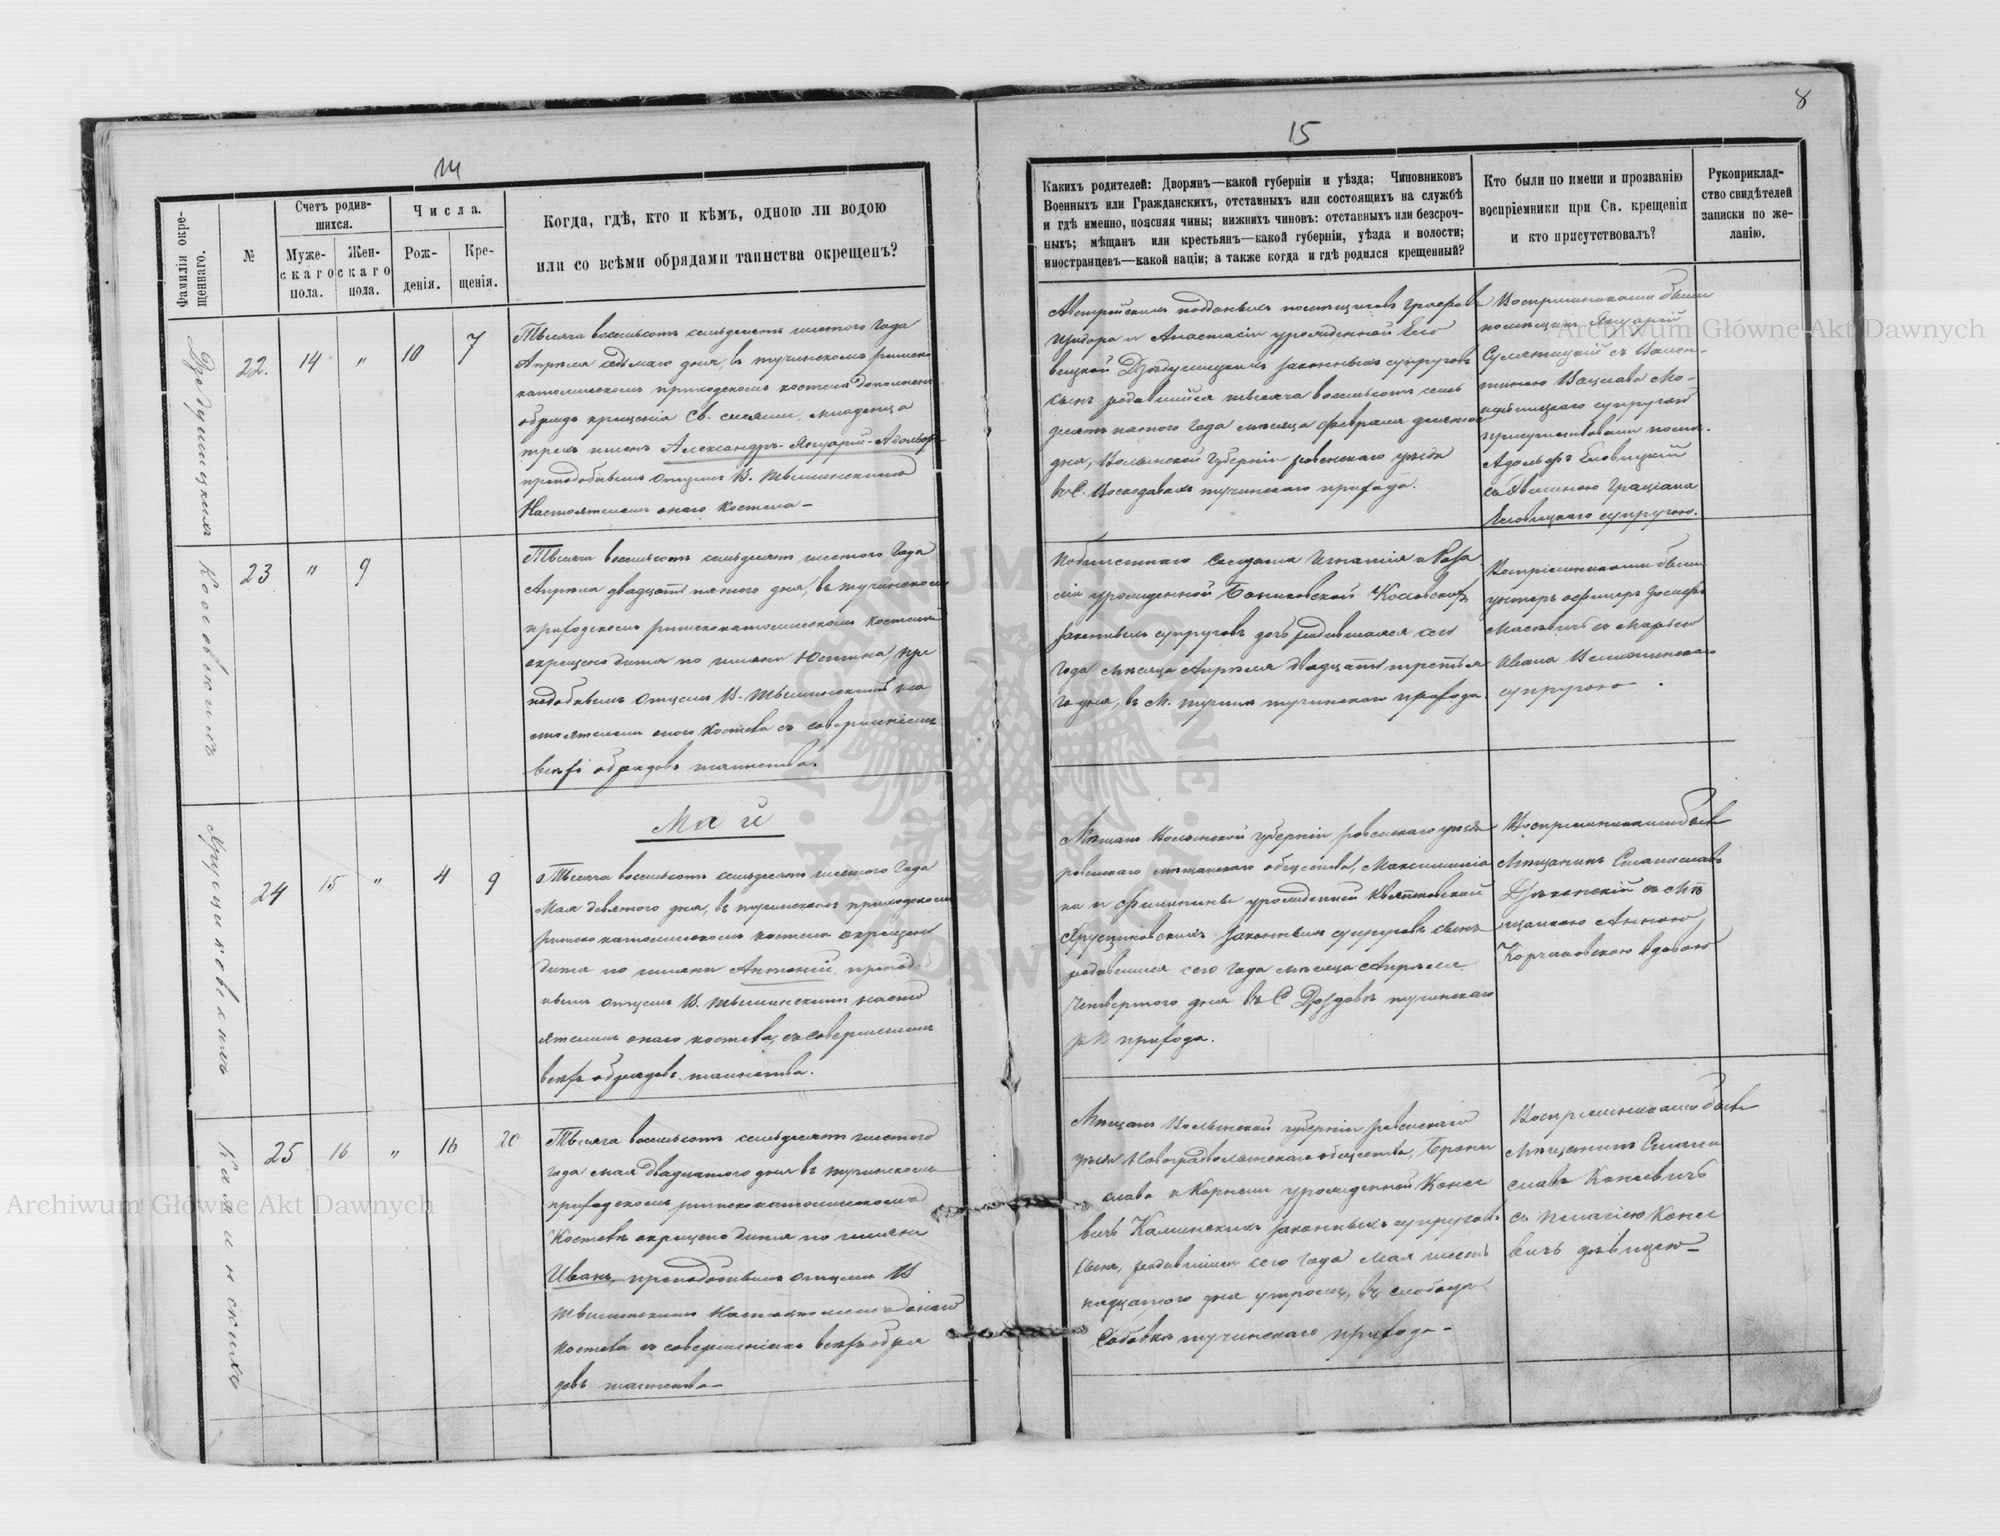 14
Фамилія окре-
щеннаго.
№
Счетъ родив-
шихся.
Муже-
скаго
пола.
Жен-
скаго
пола.
Числа.
Рож-
денія.
Кре-
щенія.
Когда, гдѣ, кто и кѣмъ, одною ли водою
или со всѣми обрядами таинства окрещенъ?
22.
14
"
10
7
Тысяча восемьсотъ семьдесятъ шестого Года
Апрѣля седьмаго дня, въ тучинскомъ римско
католическомъ приходскомъ костелѣ дополненъ
обрядъ крещенія Св. елеями, младенца
трехъ именъ Александръ-Януарій-Адольфъ
преподобнымъ Отцемъ В.
Настоятелемъ онаго Костела-
23
"
9
Тысяча восемьсотъ семьдесятъ шестого Года
Апрѣля двадцать пятого дня, въ тучинскомъ
приходскомъ римскокатолическомъ костелѣ
окрещено дитя по имени Юстина, пре
подобнымъ Отцемъ В. на
стоятелемъ оного Костела съ совершеніемъ
всѣхъ обрядовъ таинства.
Май
24
15
"
4
9
Тысяча восемьсотъ семьдесятъ шестого Года
Мая девятого дня, въ тучинскомъ приходскомъ
римскокатолическомъ костелѣ окрещено
дитя по имени Антоній, преподо
бнымъ Отцемъ В. насто
ятелемъ онаго костела, съ совершеніемъ
всѣхъ обрядовъ таинства.
Каминскихъ
25
16
"
16
20
Тысяча восемьсотъ семьдесятъ шестого
года мая двадцатого дня въ тучинскомъ
приходскомъ римскокатолическомъ
Костелѣ окрещено дитя по имени
Иванъ, преподобнымъ Отцемъ В
Настоятелемъ онаго
костела съ совершеніемъ всѣхъ обря
довъ таинства-
8
15
Какихъ родителей: Дворянъ—какой губерніи и уѣзда; Чиновниковъ
Военныхъ или Гражданскихъ, отставныхъ или состоящихъ на службѣ
и гдѣ именно, поясняя чины; нижнихъ чиновъ: отставныхъ или безсроч-
ныхъ; мѣщанъ или крестьянъ—какой губерніи, уѣзда и волости;
иностранцевъ—какой націи; а также когда и гдѣ родился крещенный?
Кто были по имени и прозванію
воспріемники при Св. крещеніи
и кто присутствовалъ?
Рукоприклад-
ство свидѣтелей
записки по же-
ланію.
Австрійскихъ подданныхъ помѣщиковъ Графовъ
Исидора и Анастасіи урожденной Ело
вицкой Дзѣдушицкихъ законныхъ супруговъ
сынъ родившійся тысяча восемьсотъ семь
десятъ пятого года мѣсяца февраля
дня, Волынской Губерніи ровенскаго уѣзда
въ С. Воскодавахъ тучинскаго прихода.
Воспріемниками были
помѣщикъ Януарій
съ Вален-
тиною Вацлава Мо-
супругою
присутствовали помѣщ.
Адольфъ Еловицкій
Граціана
Еловицкаго супругою.
Игнатія и
урожденной Косовскихъ
законныхъ супруговъ дочь родившаяся сего
года мѣсяца Апрѣля двадцать третья
го дня, въ М. Тучинѣ тучинскаго прихода
Воспріемниками были
унтеръ офицеръ Іосифъ
съ Марьею
Ивана
супругою.
Мѣщанъ Волынской губерніи ровенскаго уѣзда
ровенскаго мѣщанскаго общества, Максиминіа
на и Филипины урожденной Квятковской
законныхъ супруговъ сынъ
родившійся сего года мѣсяца Апрѣля
Четвертого дня въ С Дроздовѣ тучинскаго
р.к прихода.
Воспріемниками были
Мѣщанинъ Станиславъ
съ мѣ
щанкою Анною
Корчаковскою вдовою
Мѣщанъ Волынской губерніи ровенскаго
уѣзда Новоградволынскаго общества, Брони
слава и Корнеліи урожденной Коне
вичъ Каминскихъ законныхъ супругов.
сынъ, родившійся сего года Мая шест
надцатого дня утромъ, въ слободѣ
тучинскаго прихода-
Воспріемниками были
Мѣщанинъ Стани
славъ Коневичъ
съ Пелагіею Коне
вичъ дѣвицею-
Archiwum Główne Akt Dawnych
Archiwum Główne Akt Dawnych